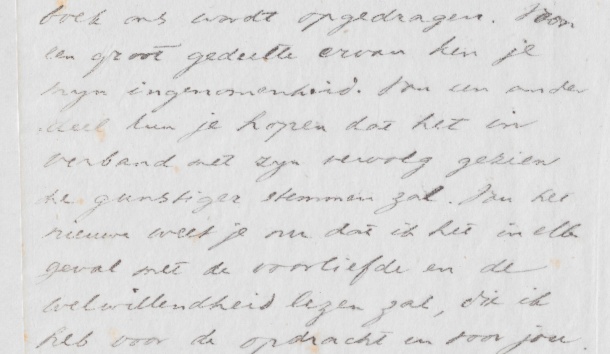 boek ons wordt opgedragen. Voor
een groot gedeelte ervan ken je
mijn ingenomenheid. Van een ander
deel kun je hopen dat het in
verband met zijn vervolg gezien
me gunstiger stemmen zal. Van het
nieuwe weet je nu dat ik het in elk
geval met de voorliefde en de
welwillendheid lezen zal, die ik
heb voor de opdracht en voor jou.